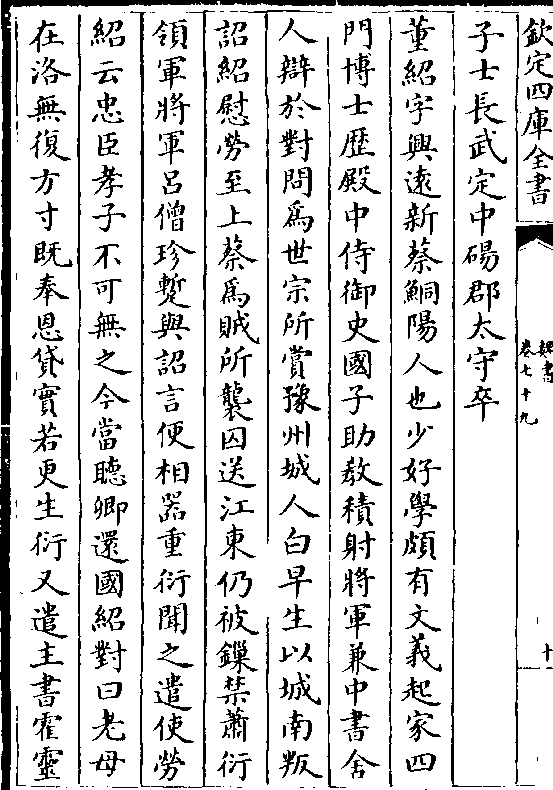 欽定四庫全書
魏書
卷七十九
十
子士長武定中碭郡太守卒
董紹字興遠新蔡鮦陽人也少好學頗有文義起家四
門博士歷殿中侍御史國子助教積射將軍兼中書舍
人辯於對問爲世宗所賞豫州城人白早生以城南叛
詔紹慰勞至上蔡爲賊所襲囚送江東仍被鏁禁蕭衍
領軍將軍呂僧珍蹔與詔言便相器重衍聞之遣使勞
紹云忠臣孝子不可無之今當聽卿還國紹對曰老母
在洛無復方寸既奉恩貸實若更生衍又遣主書霍靈